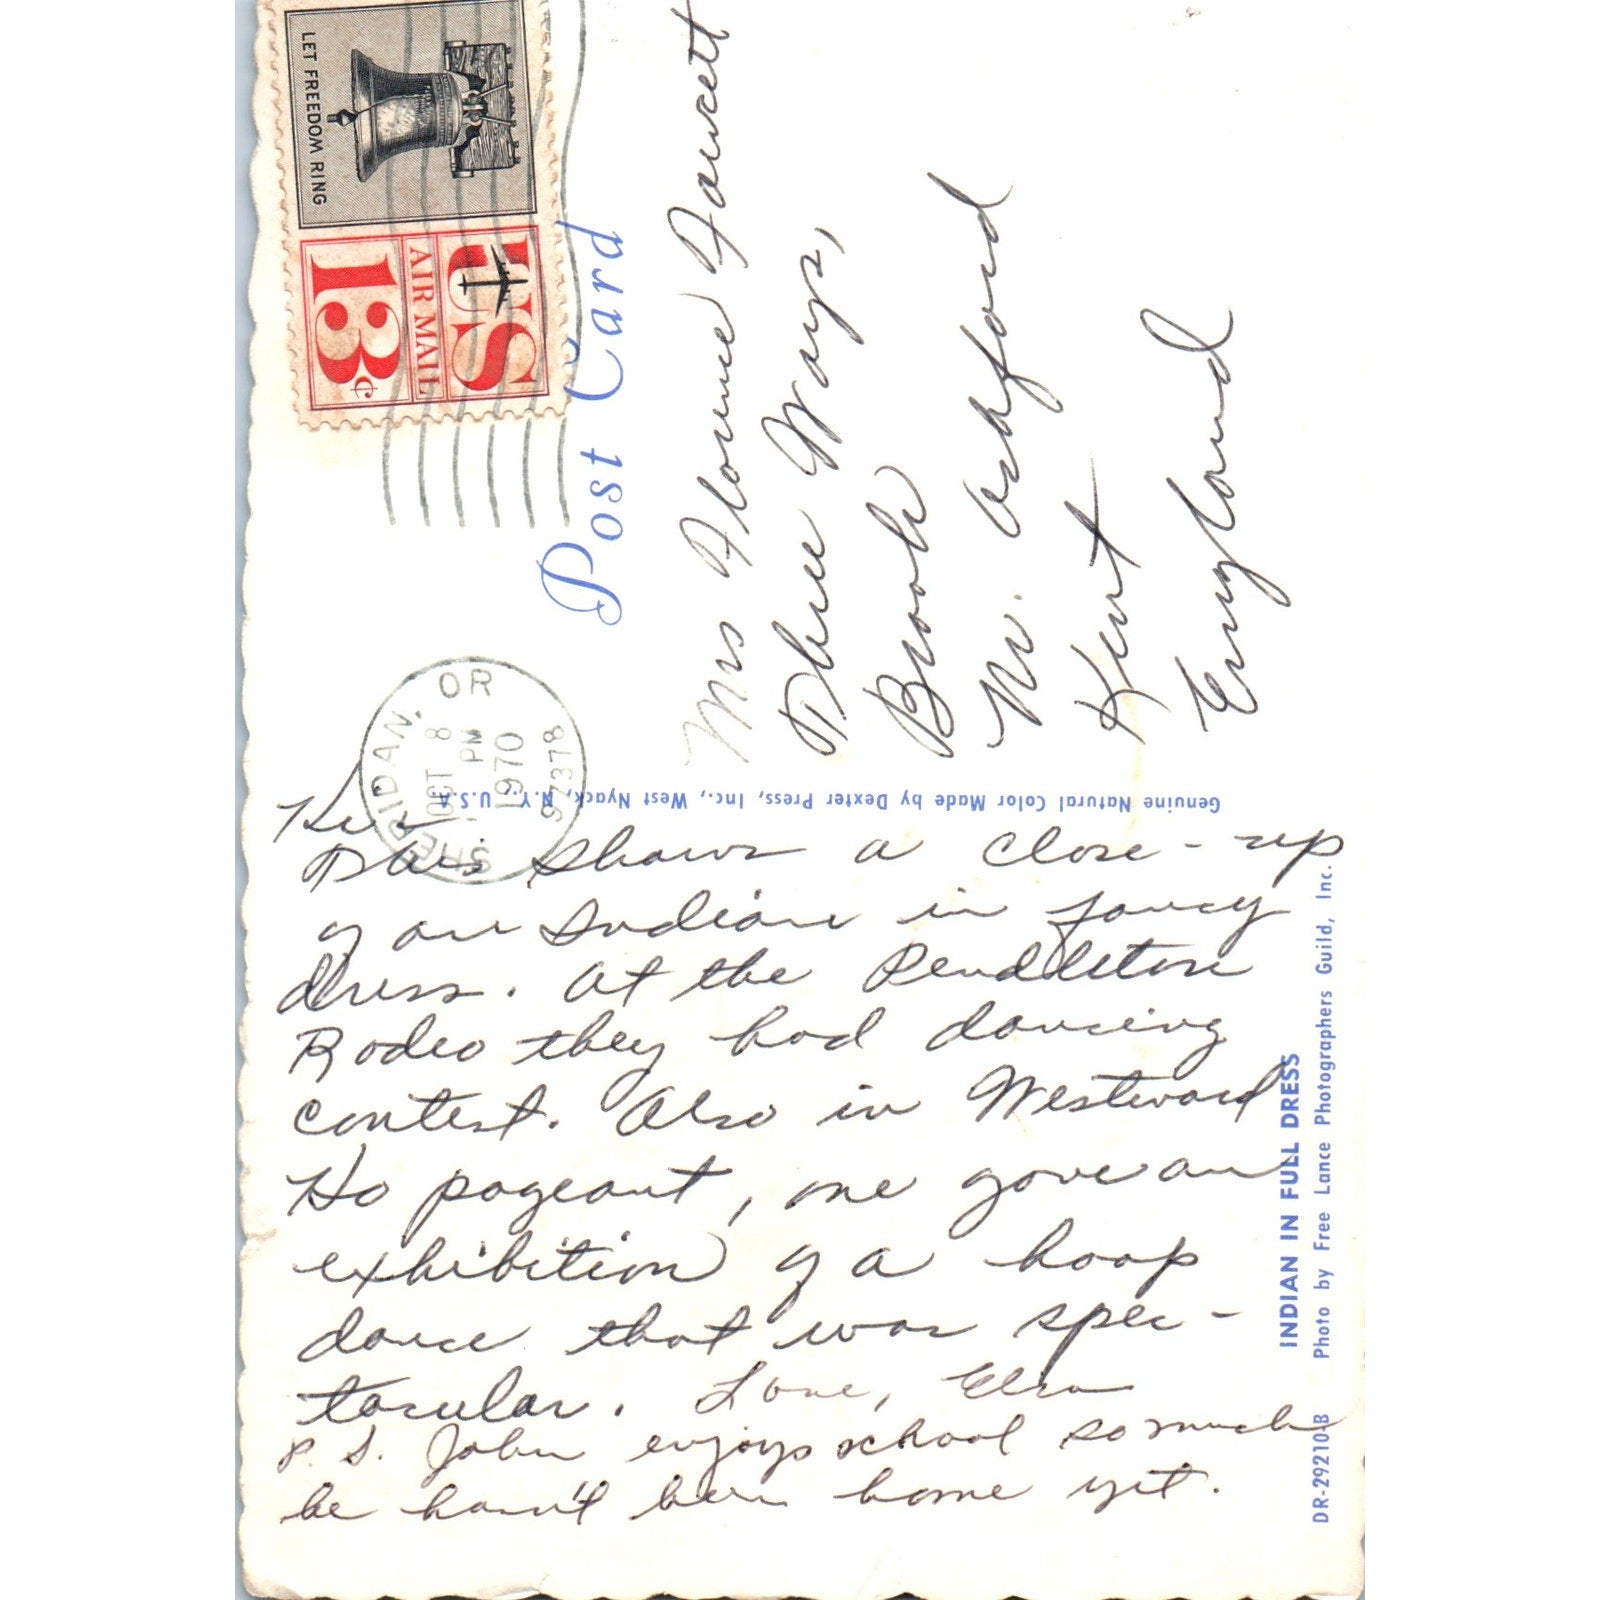 LET FREEDOM RING
US
AIR MAIL
13¢
SHERIDAN, OR
OCT 8
PM
1970
97378
Post Card
Mrs Florence Fawcett
Three Ways,
Brook
Nr. Ashford
Kent
England
Genuine Natural Color Made by Dexter Press, Inc., West Nyack, N.Y., U.S.A.
Hi
This shows a close-up
of an Indian in fancy
dress. At the Pendleton
Rodeo they had dancing
contest. Also in Westward
Ho pageant, one gave an
exhibition of a hoop
dance that was spec-
tacular. Love, Elsa
P.S. John enjoys school so much
he hasn't been home yet.
INDIAN IN FULL DRESS
Photo by Free Lance Photographers Guild, Inc.
DR-29210-B